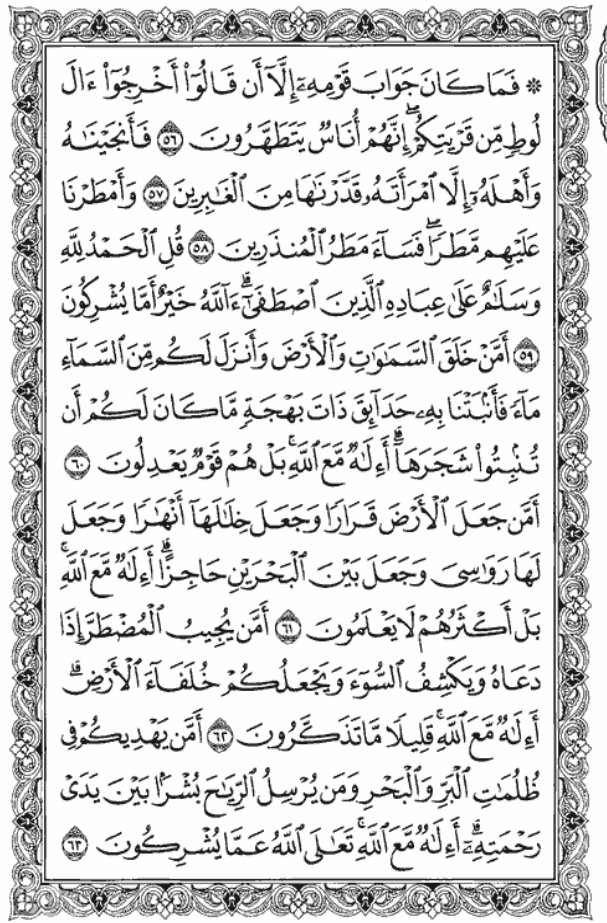 ۞ فَمَا كَانَ جَوَابَ قَوْمِهِۦٓ إِلَّآ أَن قَالُوٓا۟ أَخْرِجُوٓا۟ ءَالَ
لُوطٍ مِّن قَرْيَتِكُمْ ۖ إِنَّهُمْ أُنَاسٌ يَتَطَهَّرُونَ ٥٦ فَأَنجَيْنَـٰهُ
وَأَهْلَهُۥٓ إِلَّا ٱمْرَأَتَهُۥ قَدَّرْنَـٰهَا مِنَ ٱلْغَـٰبِرِينَ ٥٧ وَأَمْطَرْنَا
عَلَيْهِم مَّطَرًا ۖ فَسَآءَ مَطَرُ ٱلْمُنذَرِينَ ٥٨ قُلِ ٱلْحَمْدُ لِلَّهِ
وَسَلَـٰمٌ عَلَىٰ عِبَادِهِ ٱلَّذِينَ ٱصْطَفَىٰٓ ۗ ءَآللَّهُ خَيْرٌ أَمَّا يُشْرِكُونَ
٥٩ أَمَّنْ خَلَقَ ٱلسَّمَـٰوَٰتِ وَٱلْأَرْضَ وَأَنزَلَ لَكُم مِّنَ ٱلسَّمَآءِ
مَآءً فَأَنۢبَتْنَا بِهِۦ حَدَآئِقَ ذَاتَ بَهْجَةٍ مَّا كَانَ لَكُمْ أَن
تُنۢبِتُوا۟ شَجَرَهَآ ۗ أَءِلَـٰهٌ مَّعَ ٱللَّهِ ۚ بَلْ هُمْ قَوْمٌ يَعْدِلُونَ ٦٠
أَمَّن جَعَلَ ٱلْأَرْضَ قَرَارًا وَجَعَلَ خِلَـٰلَهَآ أَنْهَـٰرًا وَجَعَلَ
لَهَا رَوَٰسِىَ وَجَعَلَ بَيْنَ ٱلْبَحْرَيْنِ حَاجِزًا ۗ أَءِلَـٰهٌ مَّعَ ٱللَّهِ ۚ
بَلْ أَكْثَرُهُمْ لَا يَعْلَمُونَ ٦١ أَمَّن يُجِيبُ ٱلْمُضْطَرَّ إِذَا
دَعَاهُ وَيَكْشِفُ ٱلسُّوٓءَ وَيَجْعَلُكُمْ خُلَفَآءَ ٱلْأَرْضِ ۗ
أَءِلَـٰهٌ مَّعَ ٱللَّهِ ۚ قَلِيلًا مَّا تَذَكَّرُونَ ٦٢ أَمَّن يَهْدِيكُمْ فِى
ظُلُمَـٰتِ ٱلْبَرِّ وَٱلْبَحْرِ وَمَن يُرْسِلُ ٱلرِّيَـٰحَ بُشْرًۢا بَيْنَ يَدَىْ
رَحْمَتِهِۦٓ ۗ أَءِلَـٰهٌ مَّعَ ٱللَّهِ ۚ تَعَـٰلَى ٱللَّهُ عَمَّا يُشْرِكُونَ ٦٣